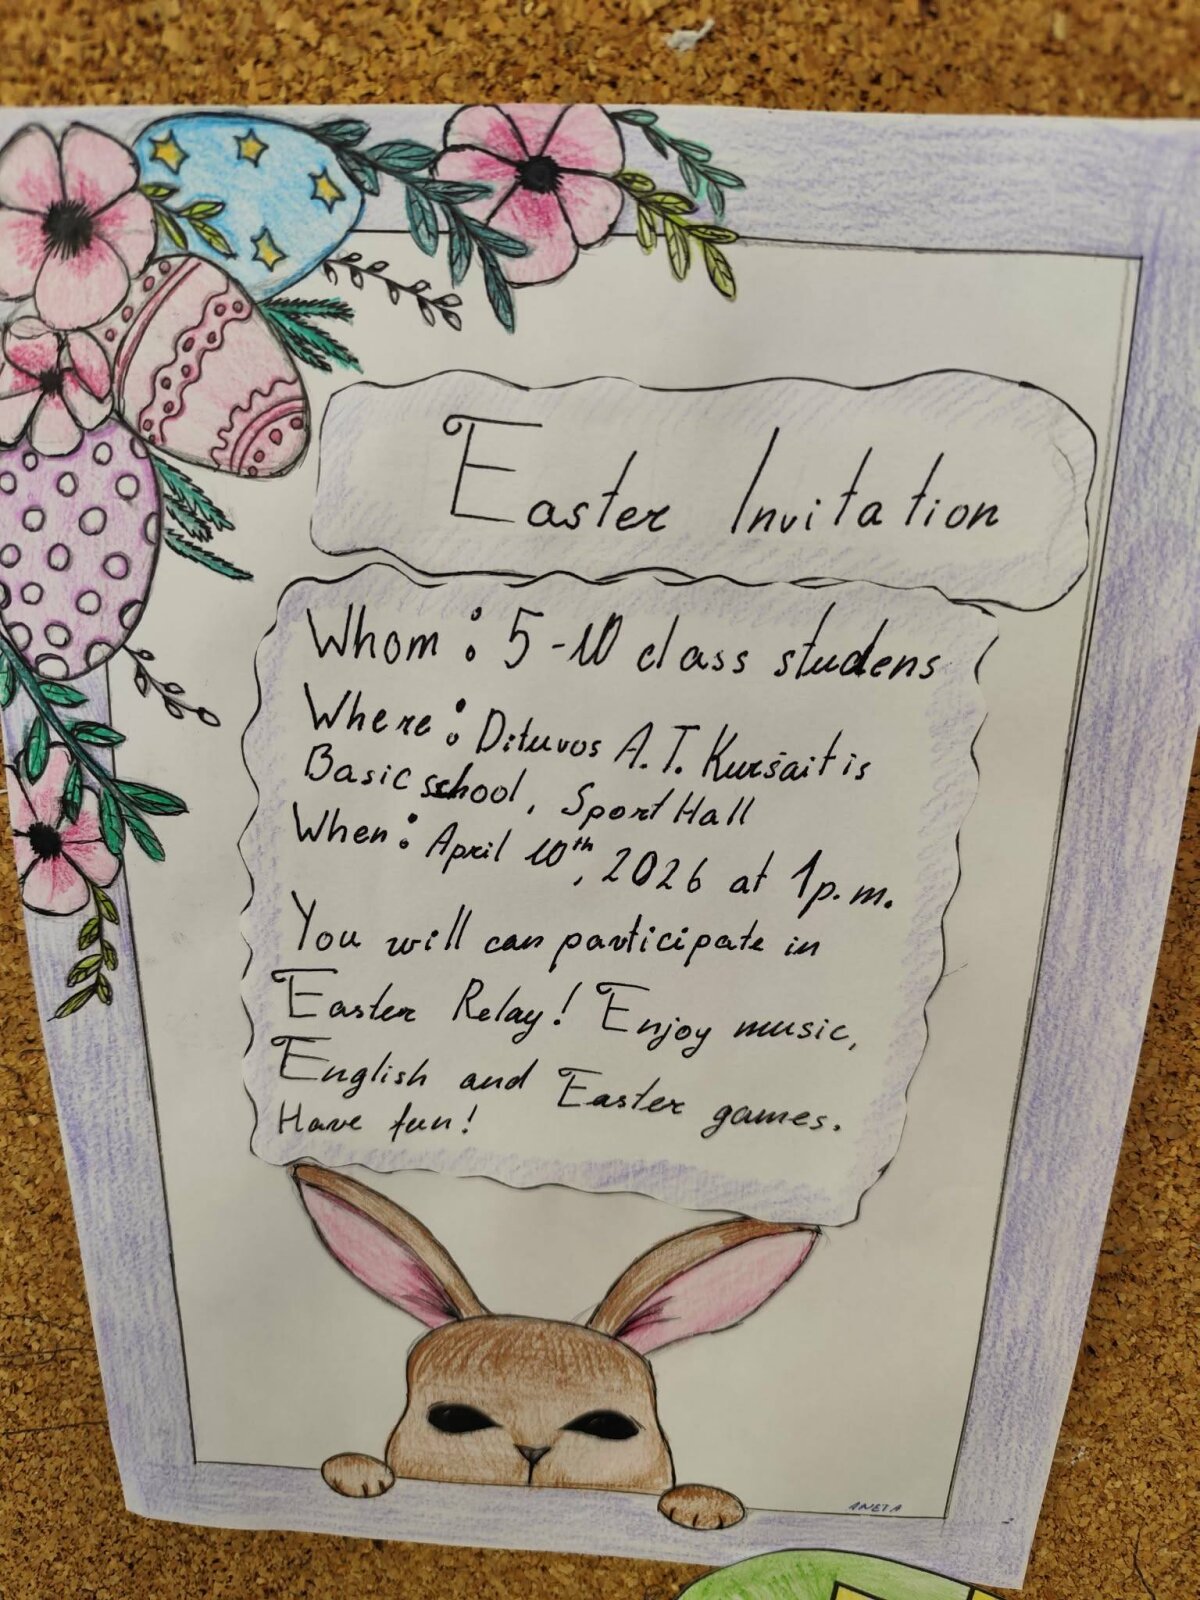 Easter Invitation
Whom: 5-10 class studens
Where: Dituvos A.T. Kuršaitis
Basic school, Sport Hall
When: April 10th, 2026 at 1p.m.
You will can participate in
Easter Relay! Enjoy music,
English and Easter games.
Have fun!
ANETA